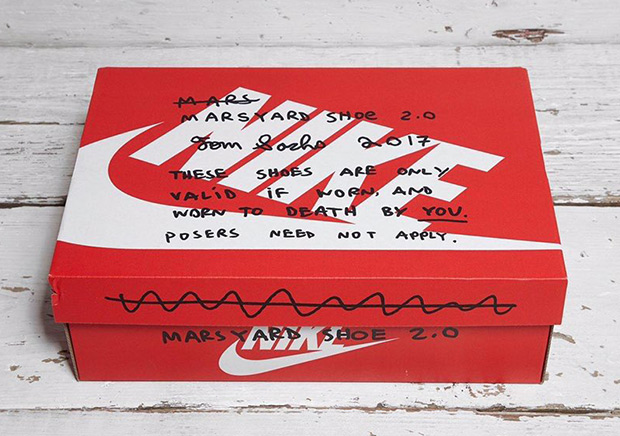 MARS
MARSYARD SHOE 2.0
Tom Sachs 2017
THESE SHOES ARE ONLY
VALID IF WORN, AND
WORN TO DEATH BY YOU.
POSERS NEED NOT APPLY.
NIKE
MARSYARD SHOE 2.0
NIKE